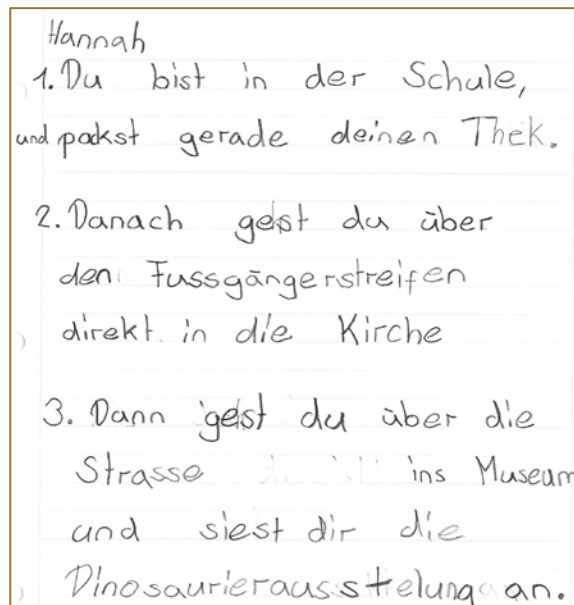 Hannah
1. Du bist in der Schule,
und packst gerade deinen Thek.
2. Danach gehst du über
den Fussgängerstreifen
direkt in die Kirche
3. Dann gehst du über die
Strasse ins Museum
und siest dir die
Dinosaurierausstelung an.